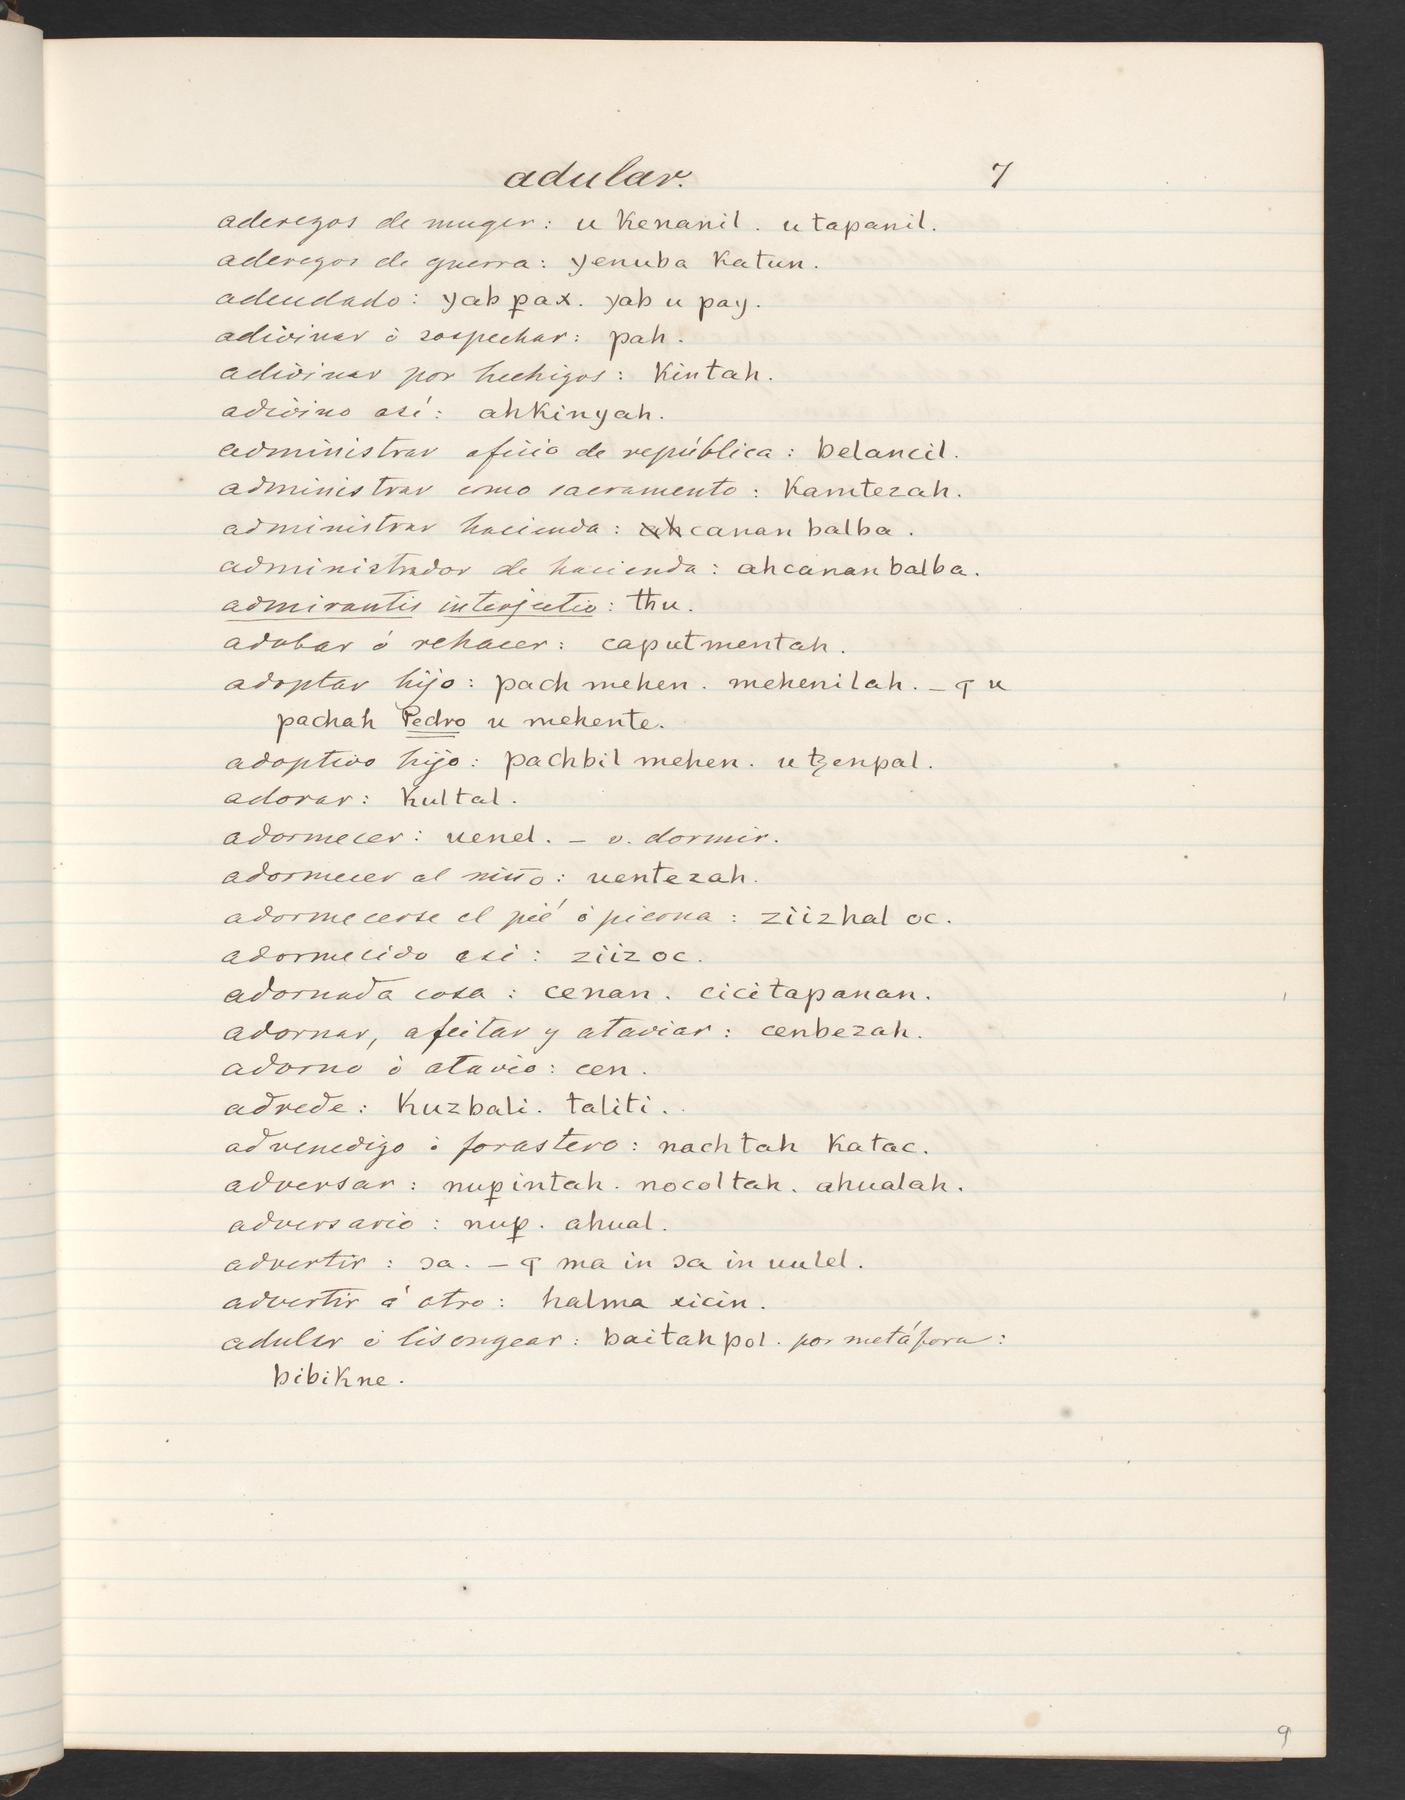 adular. 7
aderezos de muger: u Kenanil. u tapanil.
aderezos de guerra: yenuba Katun.
adeudado: yab ꝑax. yab u pay.
adivinar ò sospechar: pah.
adivinar por hechizos: Kintah.
adivino así: ahKinyah.
administrar oficio de república: belancil.
administrar como sacramento: Kamtezah.
administrar hacienda: ah canan balba.
administrador de hacienda: ahcanan balba.
admirantis interjectio: thu.
adobar ó rehacer: caputmentah.
adoptar hijo: pach mehen. mehenilah. – q u
pachah Pedro u mehente.
adoptivo hijo: pachbil mehen. u tzenpal.
adorar: Kultal.
adormecer: uenel. – v. dormir.
adormecer al niño: uentezah.
adormecerse el pié ò pierna: ziizhal oc.
adormecido asi: ziiz oc.
adornada cosa: cenan. cicitapanan.
adornar, afeitar y ataviar: cenbezah.
adorno ò atavio: cen.
adrede: Kuzbali. taliti.
advenedizo ò forastero: nachtah Katac.
adversar: nuꝑintah. nocoltah. ahualah.
adversario: nuꝑ. ahual.
advertir: ɔa. – q ma in ɔa in uulel.
advertir á otro: halma xicin.
adular ò lisongear: baitah pol. por metáfora:
bibiKne.
9